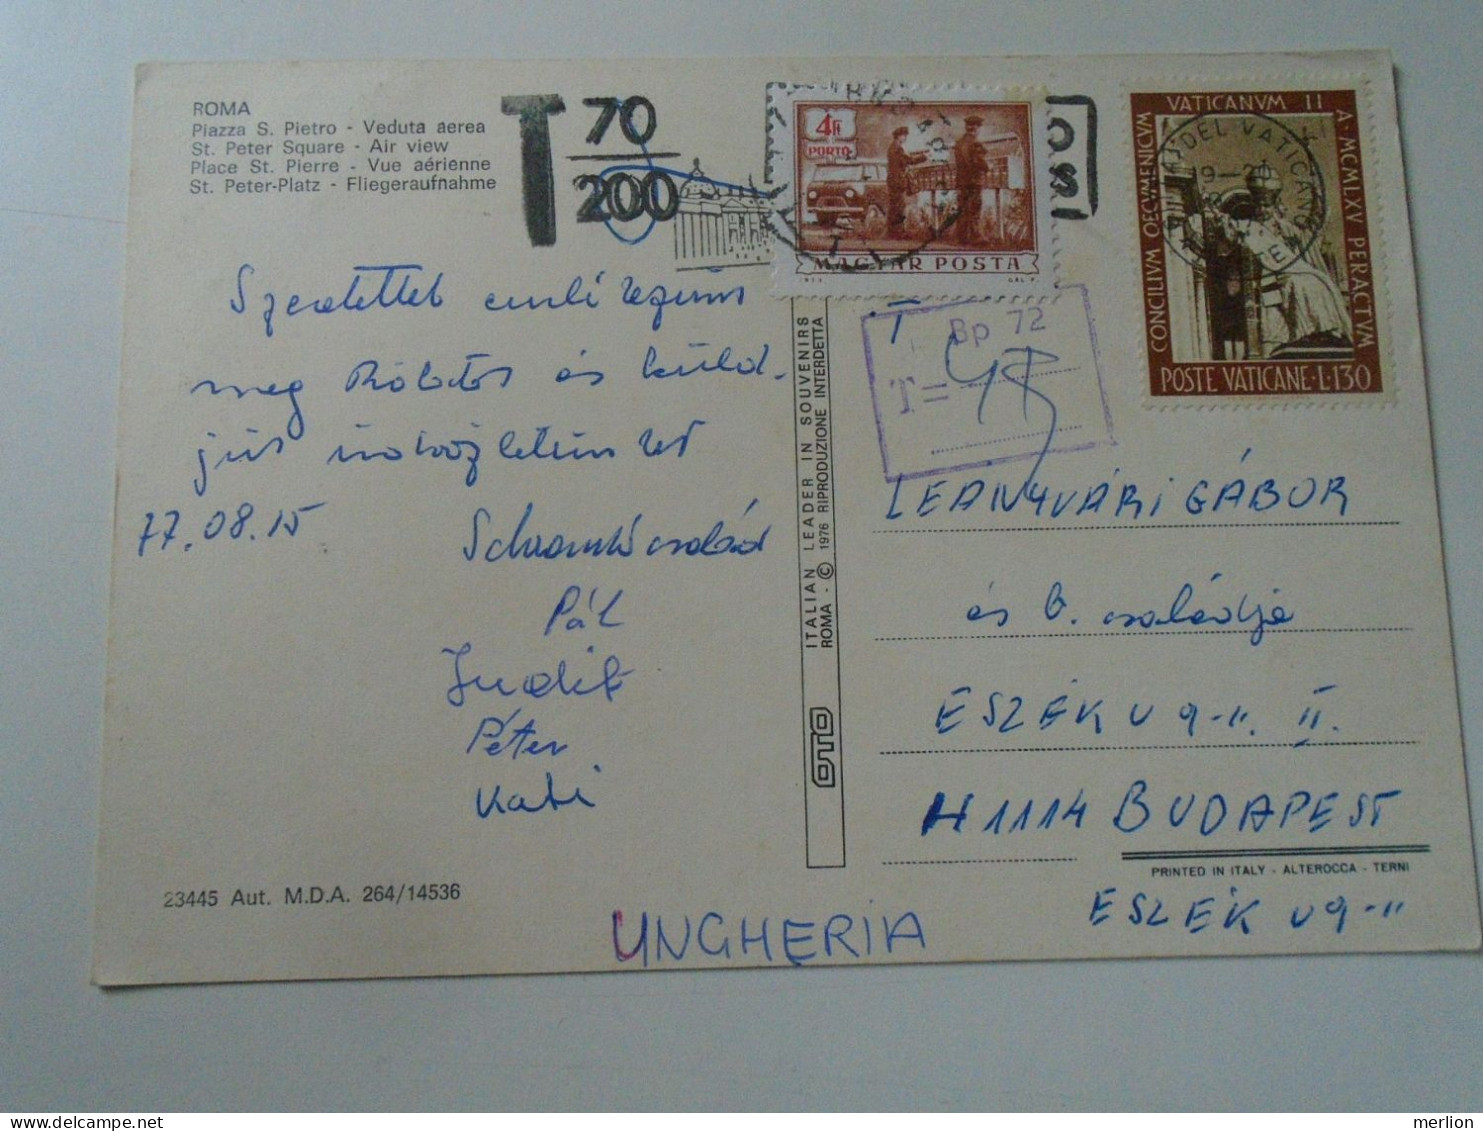 ROMA
Piazza S. Pietro - Veduta aerea
St. Peter Square - Air view
Place St. Pierre - Vue aérienne
St. Peter-Platz - Fliegeraufnahme
T 70
200
4 Ft
PORTO
MAGYAR POSTA
VATICANVM II
CONCILIVM OECVMENICVM
A·MCMLXV PERACTVM
POSTE VATICANE·L·130
19-20
T
Bp 72
T=
Szeretettel emlékezünk
meg Rólatok és küld-
jük üdvözletünket
77.08.15
család
Pál
Judit
Péter
Kati
ITALIAN LEADER IN SOUVENIRS
ROMA - © 1976 RIPRODUZIONE INTERDETTA
OTO
LEANYVÁRI GÁBOR
és b. családja
ESZÉK U 9-11. II.
H 1114 BUDAPEST
PRINTED IN ITALY - ALTEROCCA - TERNI
ESZÉK U 9-11
23445 Aut. M.D.A. 264/14536
UNGHERIA
merlion